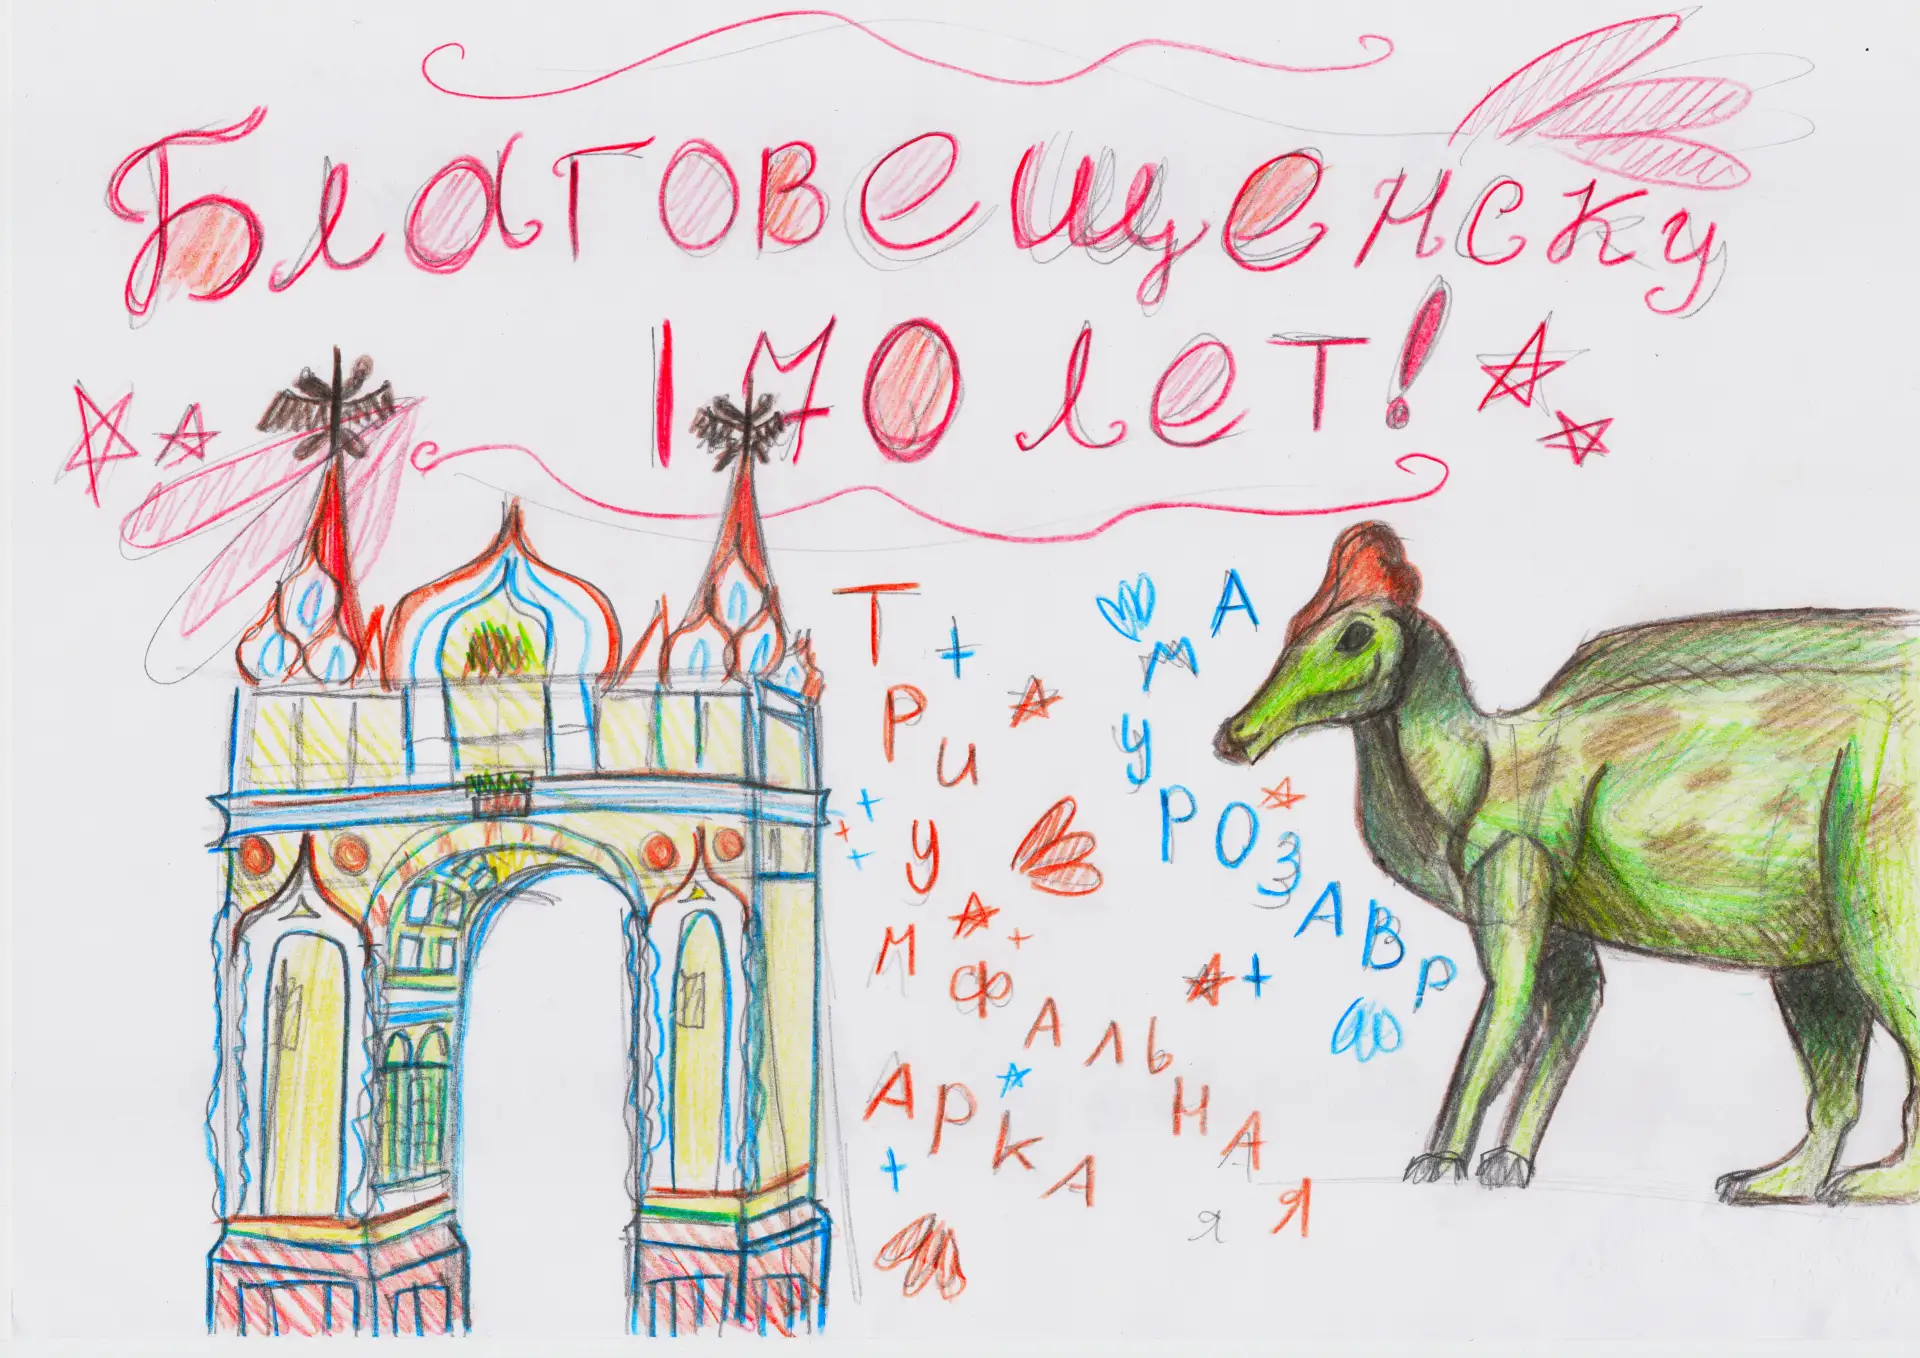 Благовещенску
170 лет!
Триумфальная
Арка
Амурозавр
я